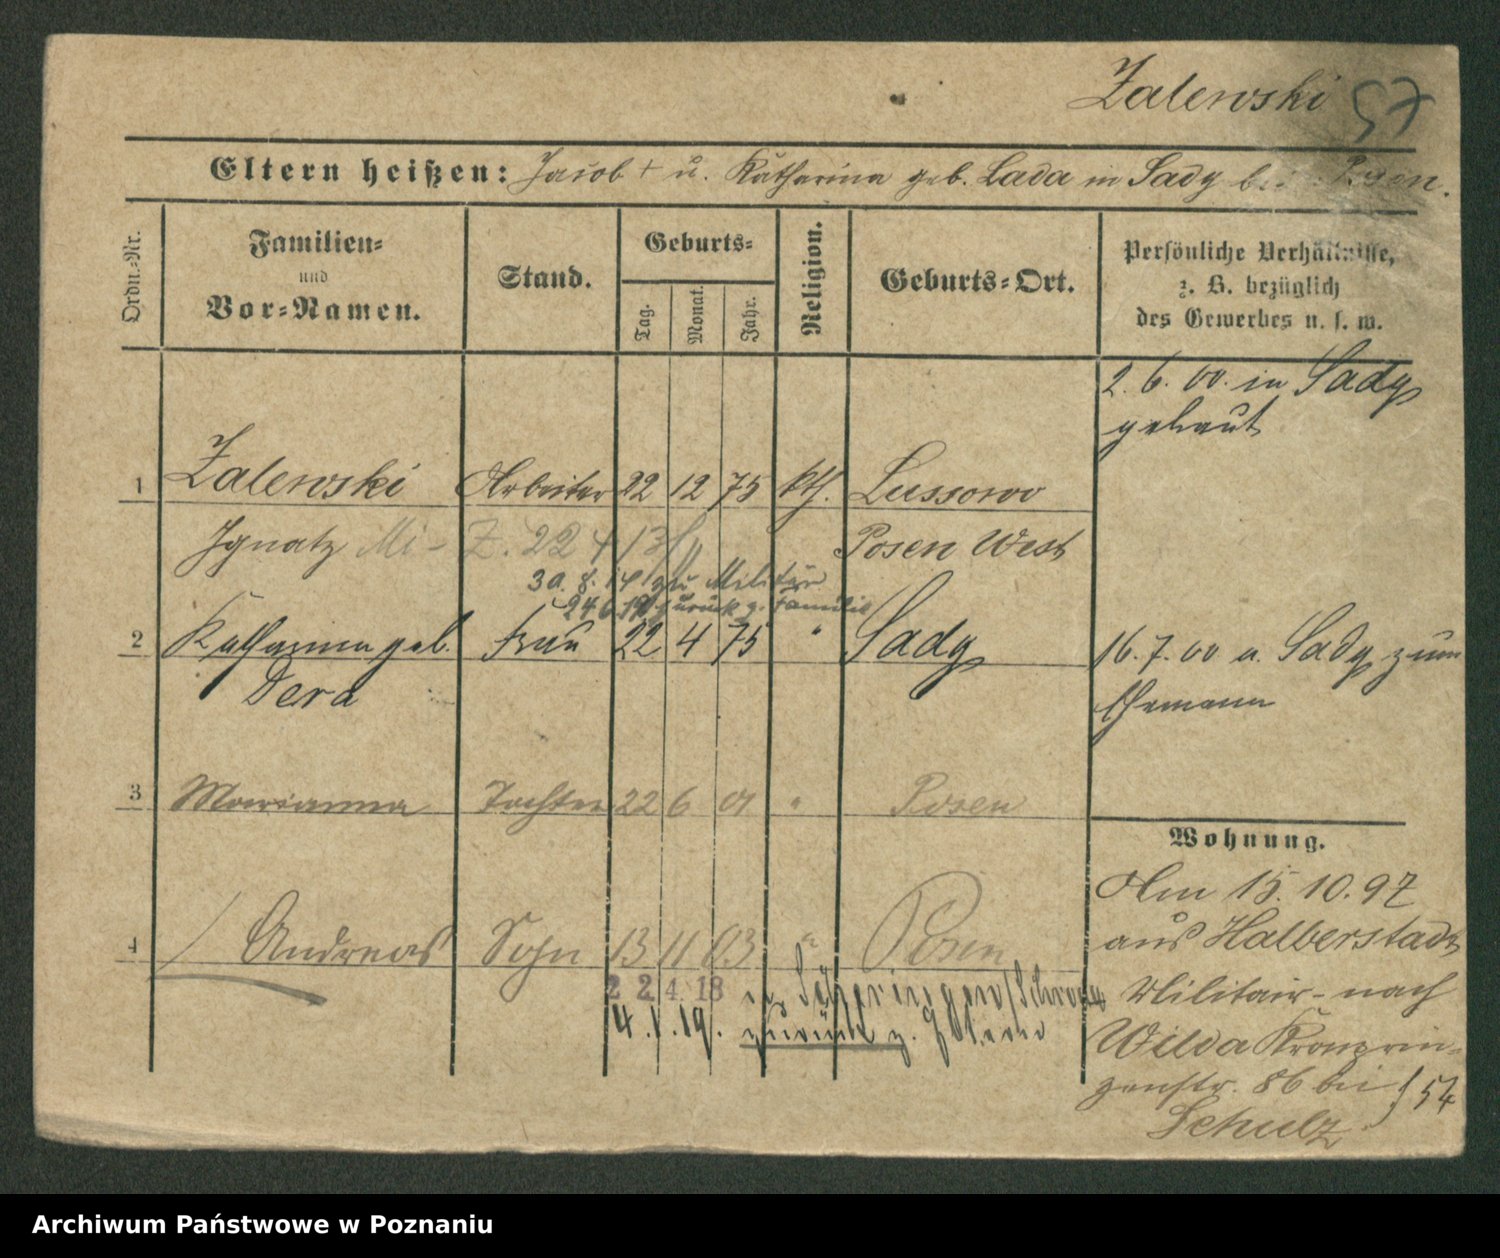 Zalewski 57
Eltern heißen: Jacob + u. Katharina geb. Lada in Sady bei Posen.
Ordn.-Nr.
Familien-
und
Vor-Namen.
Stand.
Geburts-
Tag.
Monat.
Jahr.
Religion.
Geburts-Ort.
Persönliche Verhältnisse,
z. B. bezüglich
des Gewerbes u. s. w.
2. 6. 00. in Sady
getraut
1 Zalewski Arbeiter 22 12 75 kth. Lussowo
Ignatz Posen West
30. 8. 14 zu Militär
zurück z. Familie
2 Katharina geb. Frau 22 4 75 " Sady
Dera
16. 7. 00 a. Sady zum
Ehemann
3 Marianna Tochter 22 6 01 " Posen
4 Andreas Sohn 13 11 03 " Posen
2 2 4 18
4. 1. 19. zurück z. Eltern
Wohnung.
Am 15. 10. 97
aus Halberstadt
Militair- nach
Wilda Kronprin-
zenstr. 86 bei
Schulz 54
Archiwum Państwowe w Poznaniu